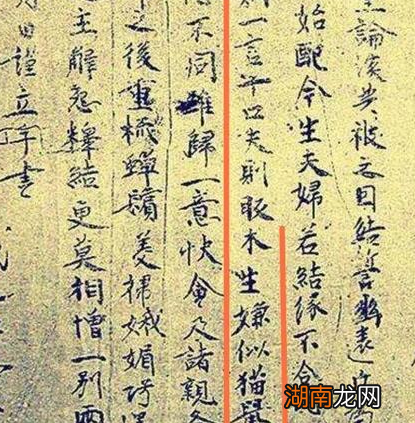 論淡共被之因結誓幽遠
始配今生夫婦若結緣不合
則一言十口夫則眅木生嫌似猫鼠
不同難歸一意快會及諸親各
之後重梳蟬鬢美掃娥媚巧
主解怨釋結更莫相憎一別兩
日謹立手書
湖南龙网